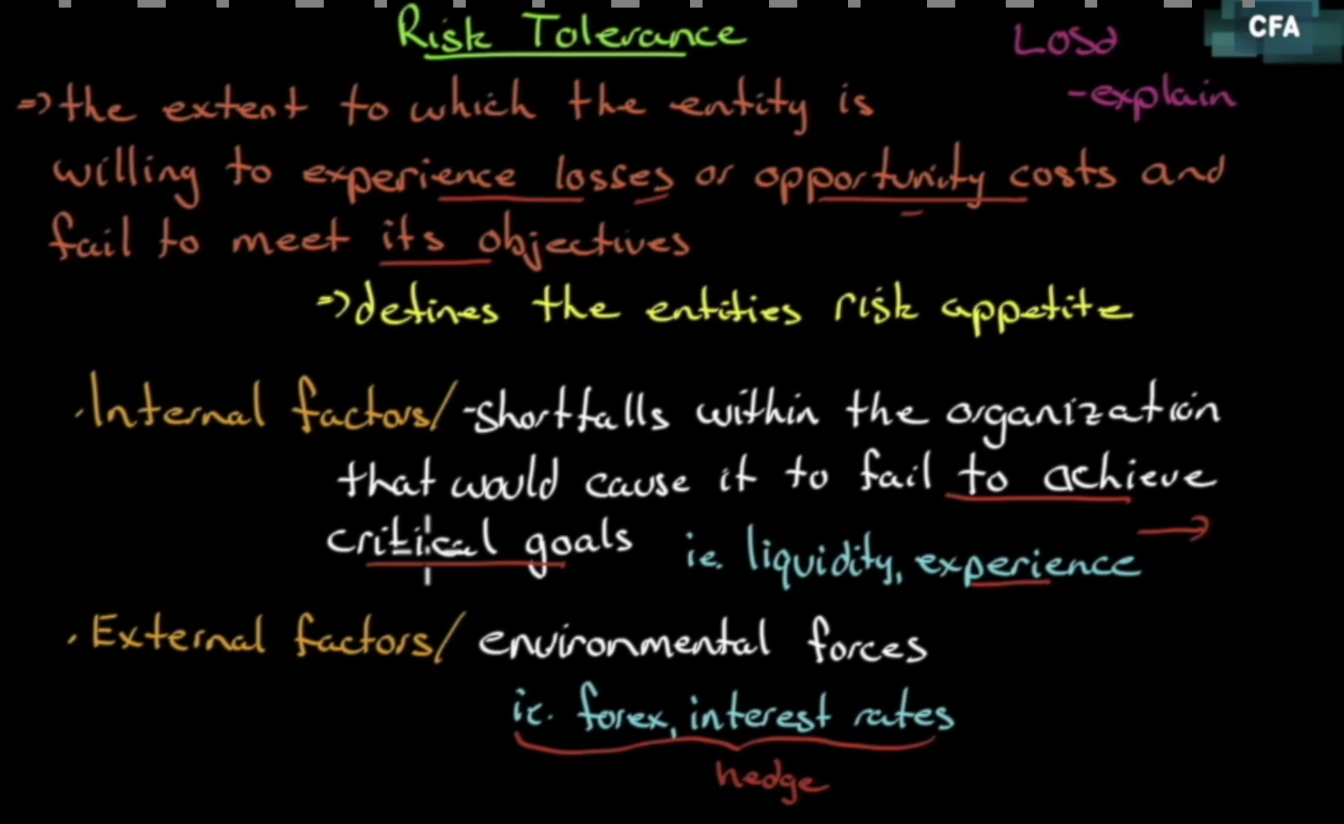 Risk Tolerance
LOSd
CFA
-explain
=> the extent to which the entity is
willing to experience losses or opportunity costs and
fail to meet its objectives
=> defines the entities risk appetite
· Internal factors/ -shortfalls within the organization
that would cause it to fail to achieve
critical goals ie. liquidity, experience →
· External factors/ environmental forces
ie. forex, interest rates
hedge